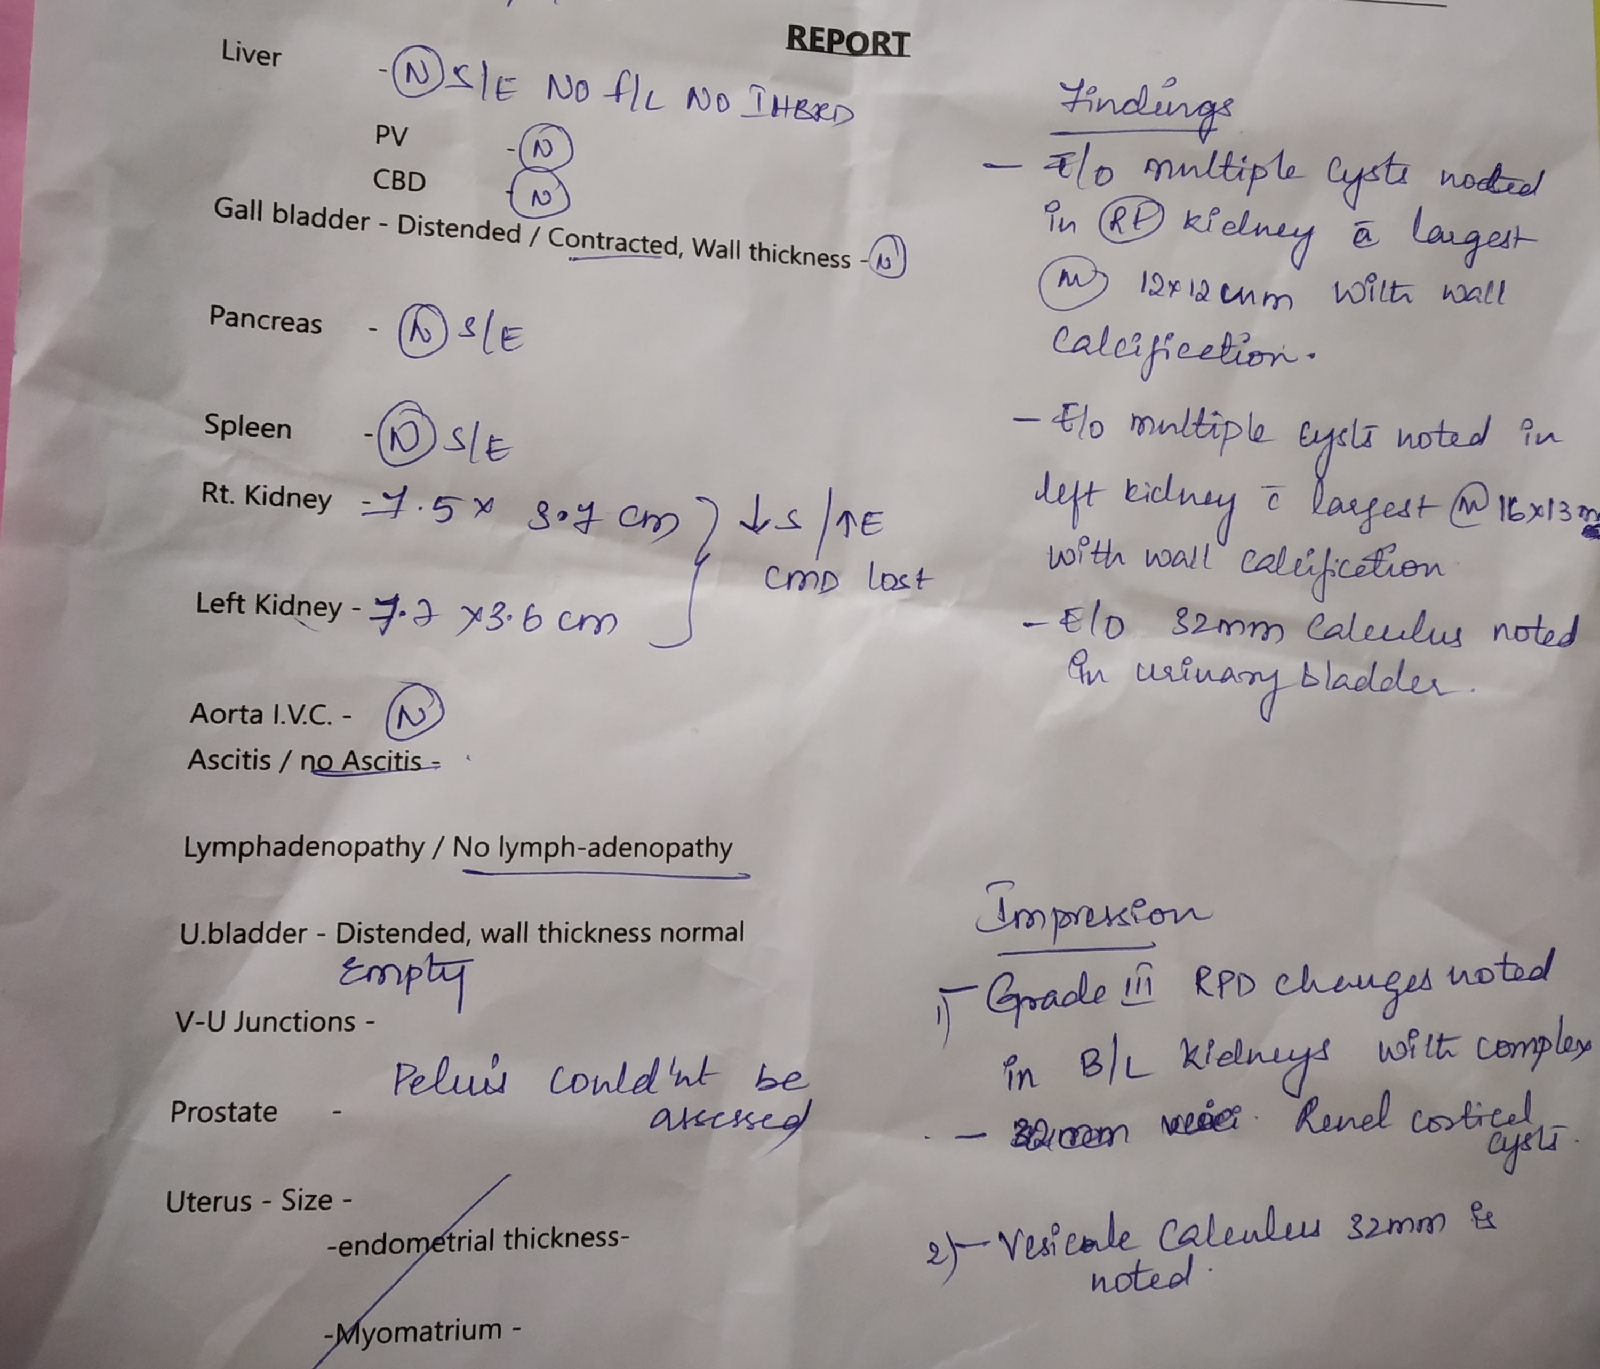 REPORT
Liver - (N) S/E NO f/L NO IHBRD
PV - (N)
CBD - (N)
Gall bladder - Distended / Contracted, Wall thickness - (N)
Pancreas - (N) S/E
Spleen - (N) S/E
Rt. Kidney - 7.5 x 3.7 cm } ↓S/↑E
CMD lost
Left Kidney - 7.7 x3.6 cm
Aorta I.V.C. - (N)
Ascitis / no Ascitis -
Lymphadenopathy / No lymph-adenopathy
U.bladder - Distended, wall thickness normal
Empty
V-U Junctions -
Pelvis could'nt be
assessed
Prostate -
Uterus - Size -
-endometrial thickness-
-Myomatrium -
Findings
- E/o multiple cysts noted
in (Rt) kidney c̄ largest
(M) 12x12 mm with wall
calcification.
- E/o multiple cysts noted in
left kidney c̄ largest (M) 16x13
with wall calcification
- E/o 32mm calculus noted
in urinary bladder.
Impression
1) - Grade III RPD changes noted
in B/L kidneys with complex
- Renal cortical
cysts.
2) - Vesicale calculus 32mm is
noted.